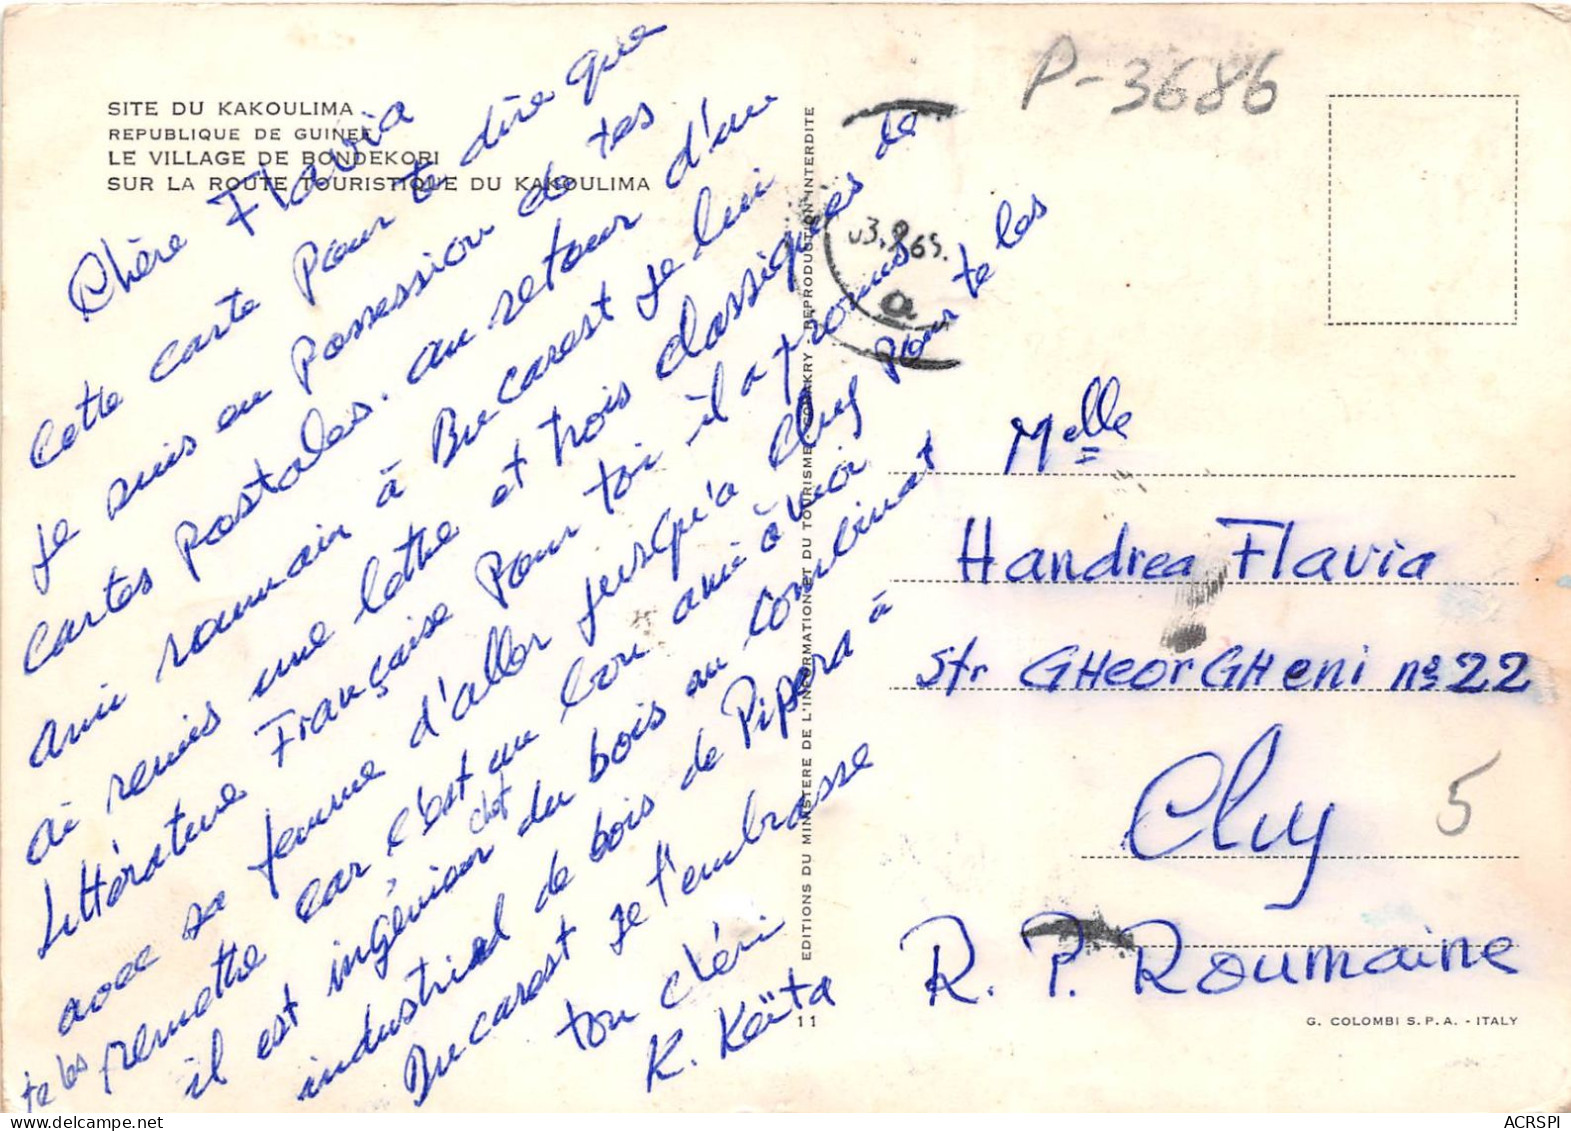 SITE DU KAKOULIMA
REPUBLIQUE DE GUINEE
LE VILLAGE DE BONDEKORI
SUR LA ROUTE TOURISTIQUE DU KAKOULIMA
Chère Flavia
Cette carte Pour te dire que
Je suis en Possession de tes
cartes Postales. au retour d'un
ami roumain à Bucarest je lui
ai remis une lettre et trois classiques de
Littérature Française Pour toi il a promis
avec sa femme d'aller jusqu'à Cluj Pour te les
te les remettre car c'est un bon ami à moi
il est ingénieur chef du bois au Combinat
industriel de bois de Pipera à
Bucarest Je t'embrasse
ton chéri
K. Keïta
EDITIONS DU MINISTERE DE L'INFORMATION ET DU TOURISME, CONAKRY - REPRODUCTION INTERDITE
11
P-3686
03.9.65.
a
Melle
Handrea Flavia
Str GHeorGHeni no 22
Cluj
5
R. P. Roumaine
G. COLOMBI S.P.A. - ITALY
ACRSPI